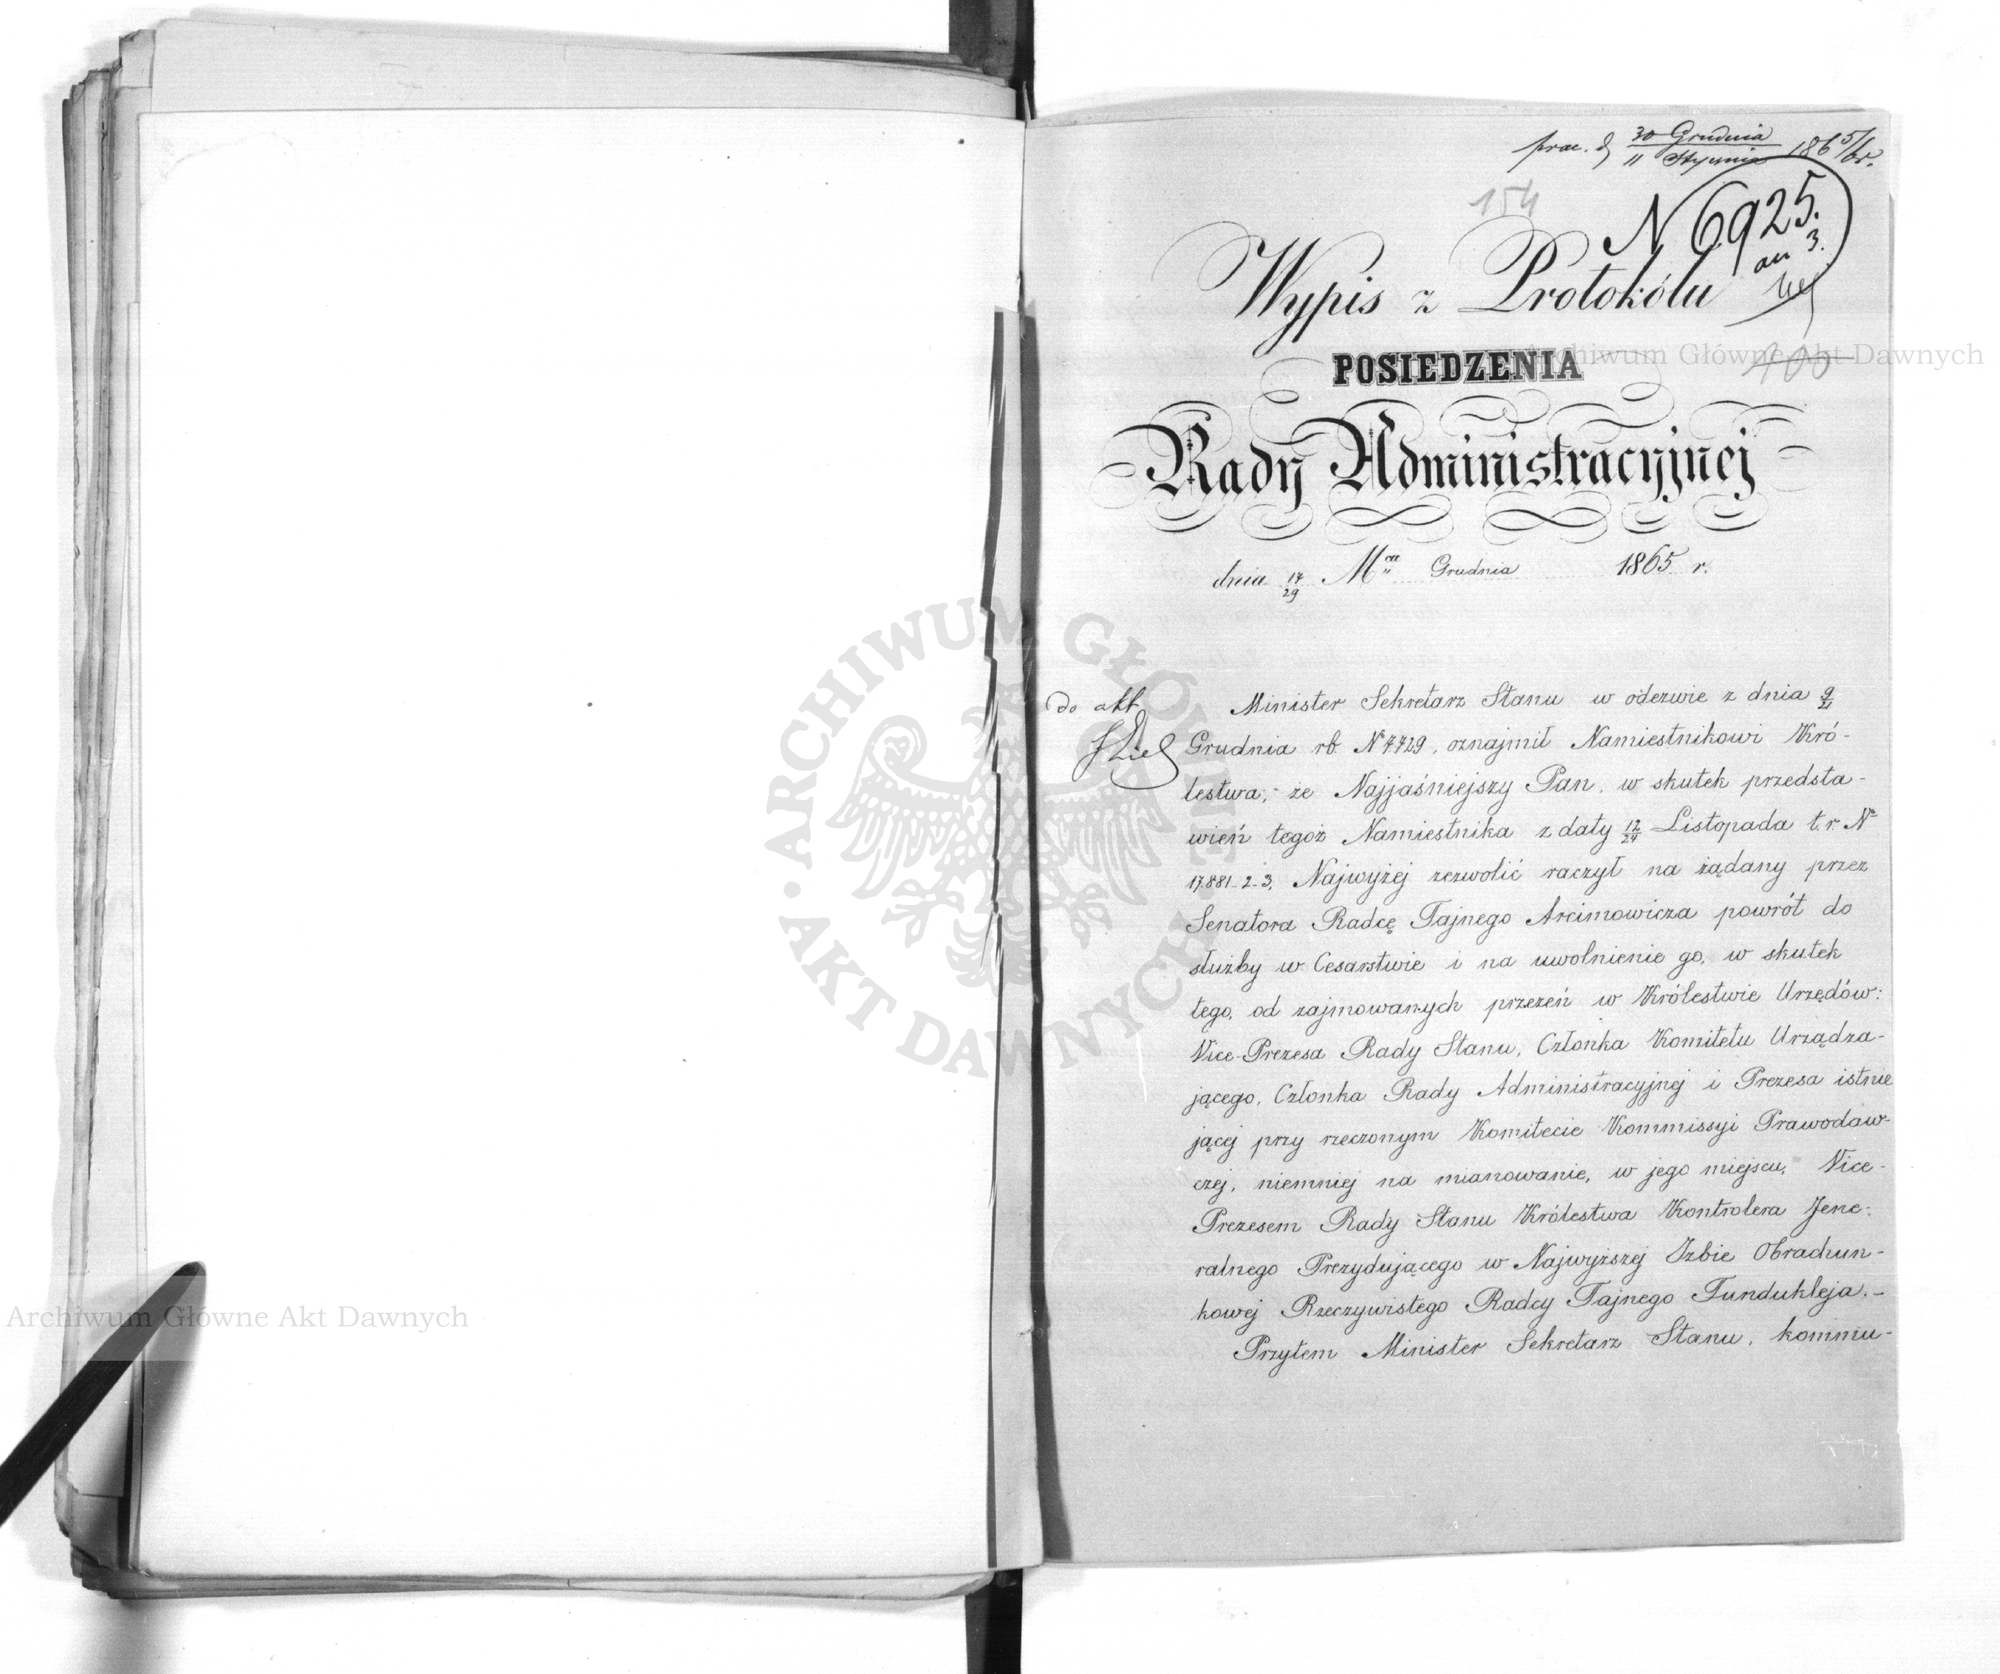 praes. d. 30 Grudnia / 11 Stycznia 1865/6 r.
154
N 6925.
an 3.
Wypis z Protokólu
POSIEDZENIA
400
Rady Administracyjnej
dnia 17/29 Mca Grudnia 1865 r.
do akt
Minister Sekretarz Stanu w odezwie z dnia 9/21
Grudnia rb. N 7729, oznajmił Namiestnikowi Kró-
lestwa, że Najjaśniejszy Pan, w skutek przedsta-
wień tegoż Namiestnika z daty 12/24 Listopada t.r. No
17.881_2_3, Najwyżej zezwolić raczył na żądany przez
Senatora Radcę Tajnego Arcimowicza powrót do
służby w Cesarstwie i na uwolnienie go, w skutek
tego, od zajmowanych przezeń w Królestwie Urzędów:
Vice-Prezesa Rady Stanu, Członka Komitetu Urządza-
jącego, Członka Rady Administracyjnej i Prezesa istnie
jącej przy rzeczonym Komitecie Kommissyi Prawodaw-
czej, niemniej na mianowanie, w jego miejscu, Vice-
Prezesem Rady Stanu Królestwa Kontrolera Jene-
ralnego Prezydującego w Najwyższej Izbie Obrachun-
kowej Rzeczywistego Radcy Tajnego Fundukleja.-
Przytem Minister Sekretarz Stanu, kommu-
Archiwum Główne Akt Dawnych
Archiwum Główne Akt Dawnych
ARCHIWUM GŁÓWNE AKT DAWNYCH